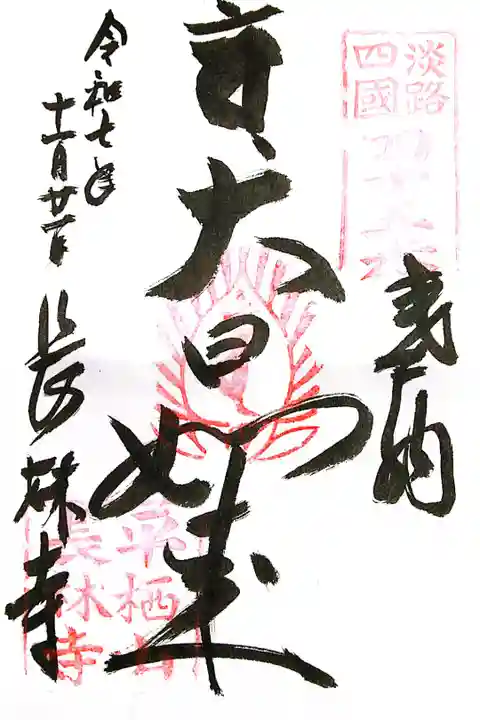 奉拝
淡路
四國
大日如来
令和七年
十一月廿一日
長林寺
平栖山
長林寺